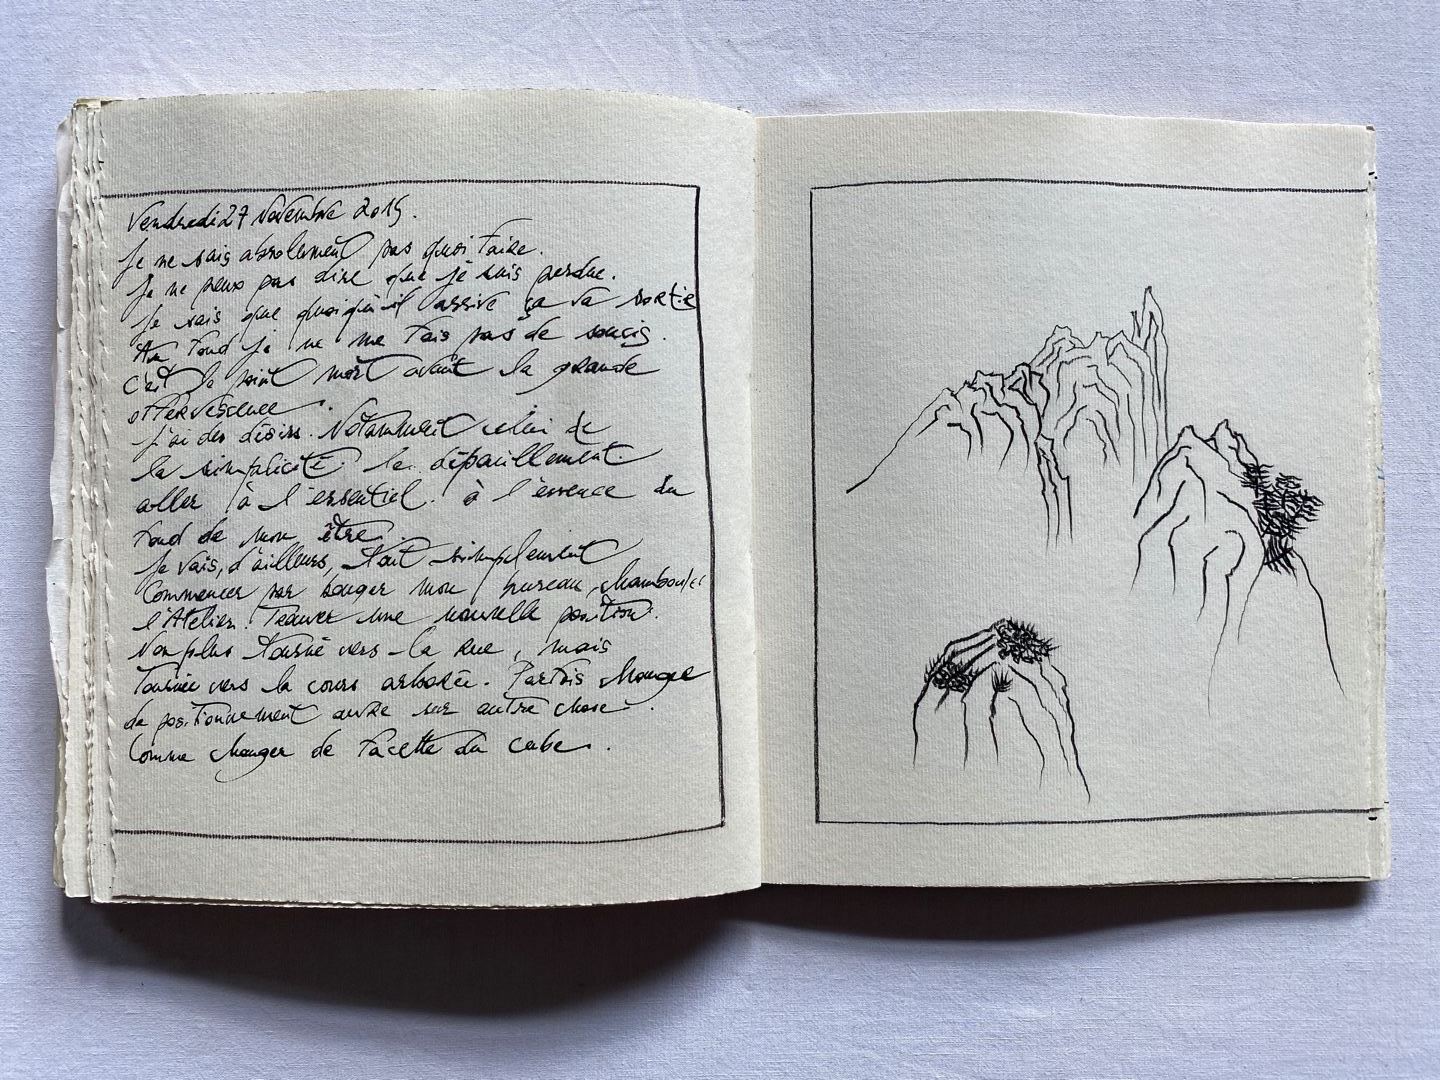 Vendredi 27 Novembre 2015.
Je ne sais absolument pas quoi faire.
Je ne peux pas dire que je suis perdue.
Je sais que quoiqu'il arrive ça va sortir
Au fond je ne me fais pas de soucis.
C'est le point mort avant la grande
effervescence.
J'ai des désirs. Notamment celui de
la simplicité. le dépouillement.
aller à l'essentiel. à l'essence du
fond de mon être.
Je vais, d'ailleurs, tout simplement
commencer par bouger mon bureau, chambouler
l'Atelier. Trouver une nouvelle position.
Non plus tourné vers la rue, mais
tournée vers la cours arborée. Parfois change
de positionnement ouvre sur autre chose.
Comme changer de facette du cube.